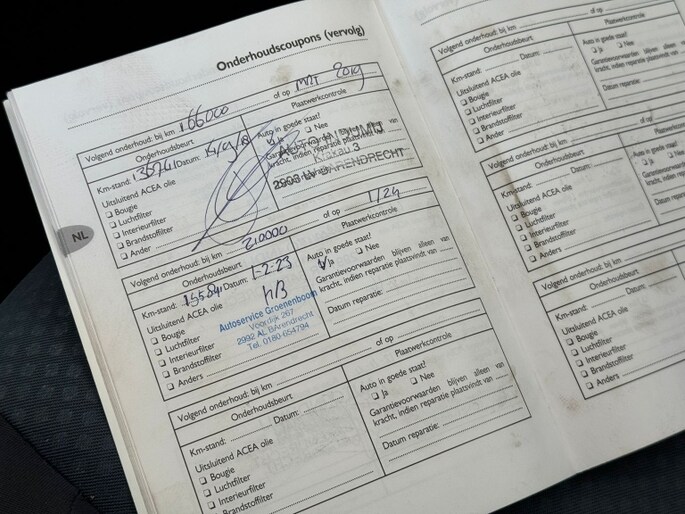 Onderhoudscoupons (vervolg)
Volgend onderhoud: bij km 166000 of op MRT 2019
Onderhoudsbeurt
Plaatwerkcontrole
Km-stand: Datum:
Uitsluitend ACEA olie
Bougie
Luchtfilter
Interieurfilter
Brandstoffilter
Ander
Auto in goede staat?
Ja Nee
kracht, indien reparatie plaatsvindt van
Kraxau 3
BARENDRECHT
NL
Volgend onderhoud: bij km 210000 of op 1/24
Onderhoudsbeurt
Plaatwerkcontrole
Km-stand: Datum: 1-2-23
Uitsluitend ACEA olie
Bougie
Luchtfilter
Interieurfilter
Brandstoffilter
Anders
Autoservice Groenenboom
Voordijk 267
2992 AL BArendrecht
Tel. 0180-654794
Auto in goede staat?
Ja Nee
Garantievoorwaarden blijven alleen van
kracht, indien reparatie plaatsvindt van
Datum reparatie:
Volgend onderhoud: bij km of op
Onderhoudsbeurt
Plaatwerkcontrole
Km-stand: Datum:
Uitsluitend ACEA olie
Bougie
Luchtfilter
Interieurfilter
Brandstoffilter
Auto in goede staat?
Ja Nee
Garantievoorwaarden blijven alleen van
kracht, indien reparatie plaatsvindt van
Datum reparatie:
Volgend onderhoud: bij km of op
Onderhoudsbeurt
Plaatwerkcontrole
Km-stand: Datum:
Uitsluitend ACEA olie
Bougie
Luchtfilter
Interieurfilter
Brandstoffilter
Ander
Auto in goede staat?
Ja Nee
Garantievoorwaarden blijven
kracht, indien reparatie
Datum reparatie:
Volgend onderhoud: bij km of op
Onderhoudsbeurt
Km-stand: Datum:
Uitsluitend ACEA olie
Bougie
Luchtfilter
Interieurfilter
Brandstoffilter
Anders
Auto in goede staat?
Ja Nee
Garantievoorwaarden
kracht, indien
Datum reparatie:
Volgend onderhoud: bij km
Onderhoudsbeurt
Km-stand: Datum:
Uitsluitend ACEA olie
Bougie
Luchtfilter
Interieurfilter
Brandstoffilter
Anders